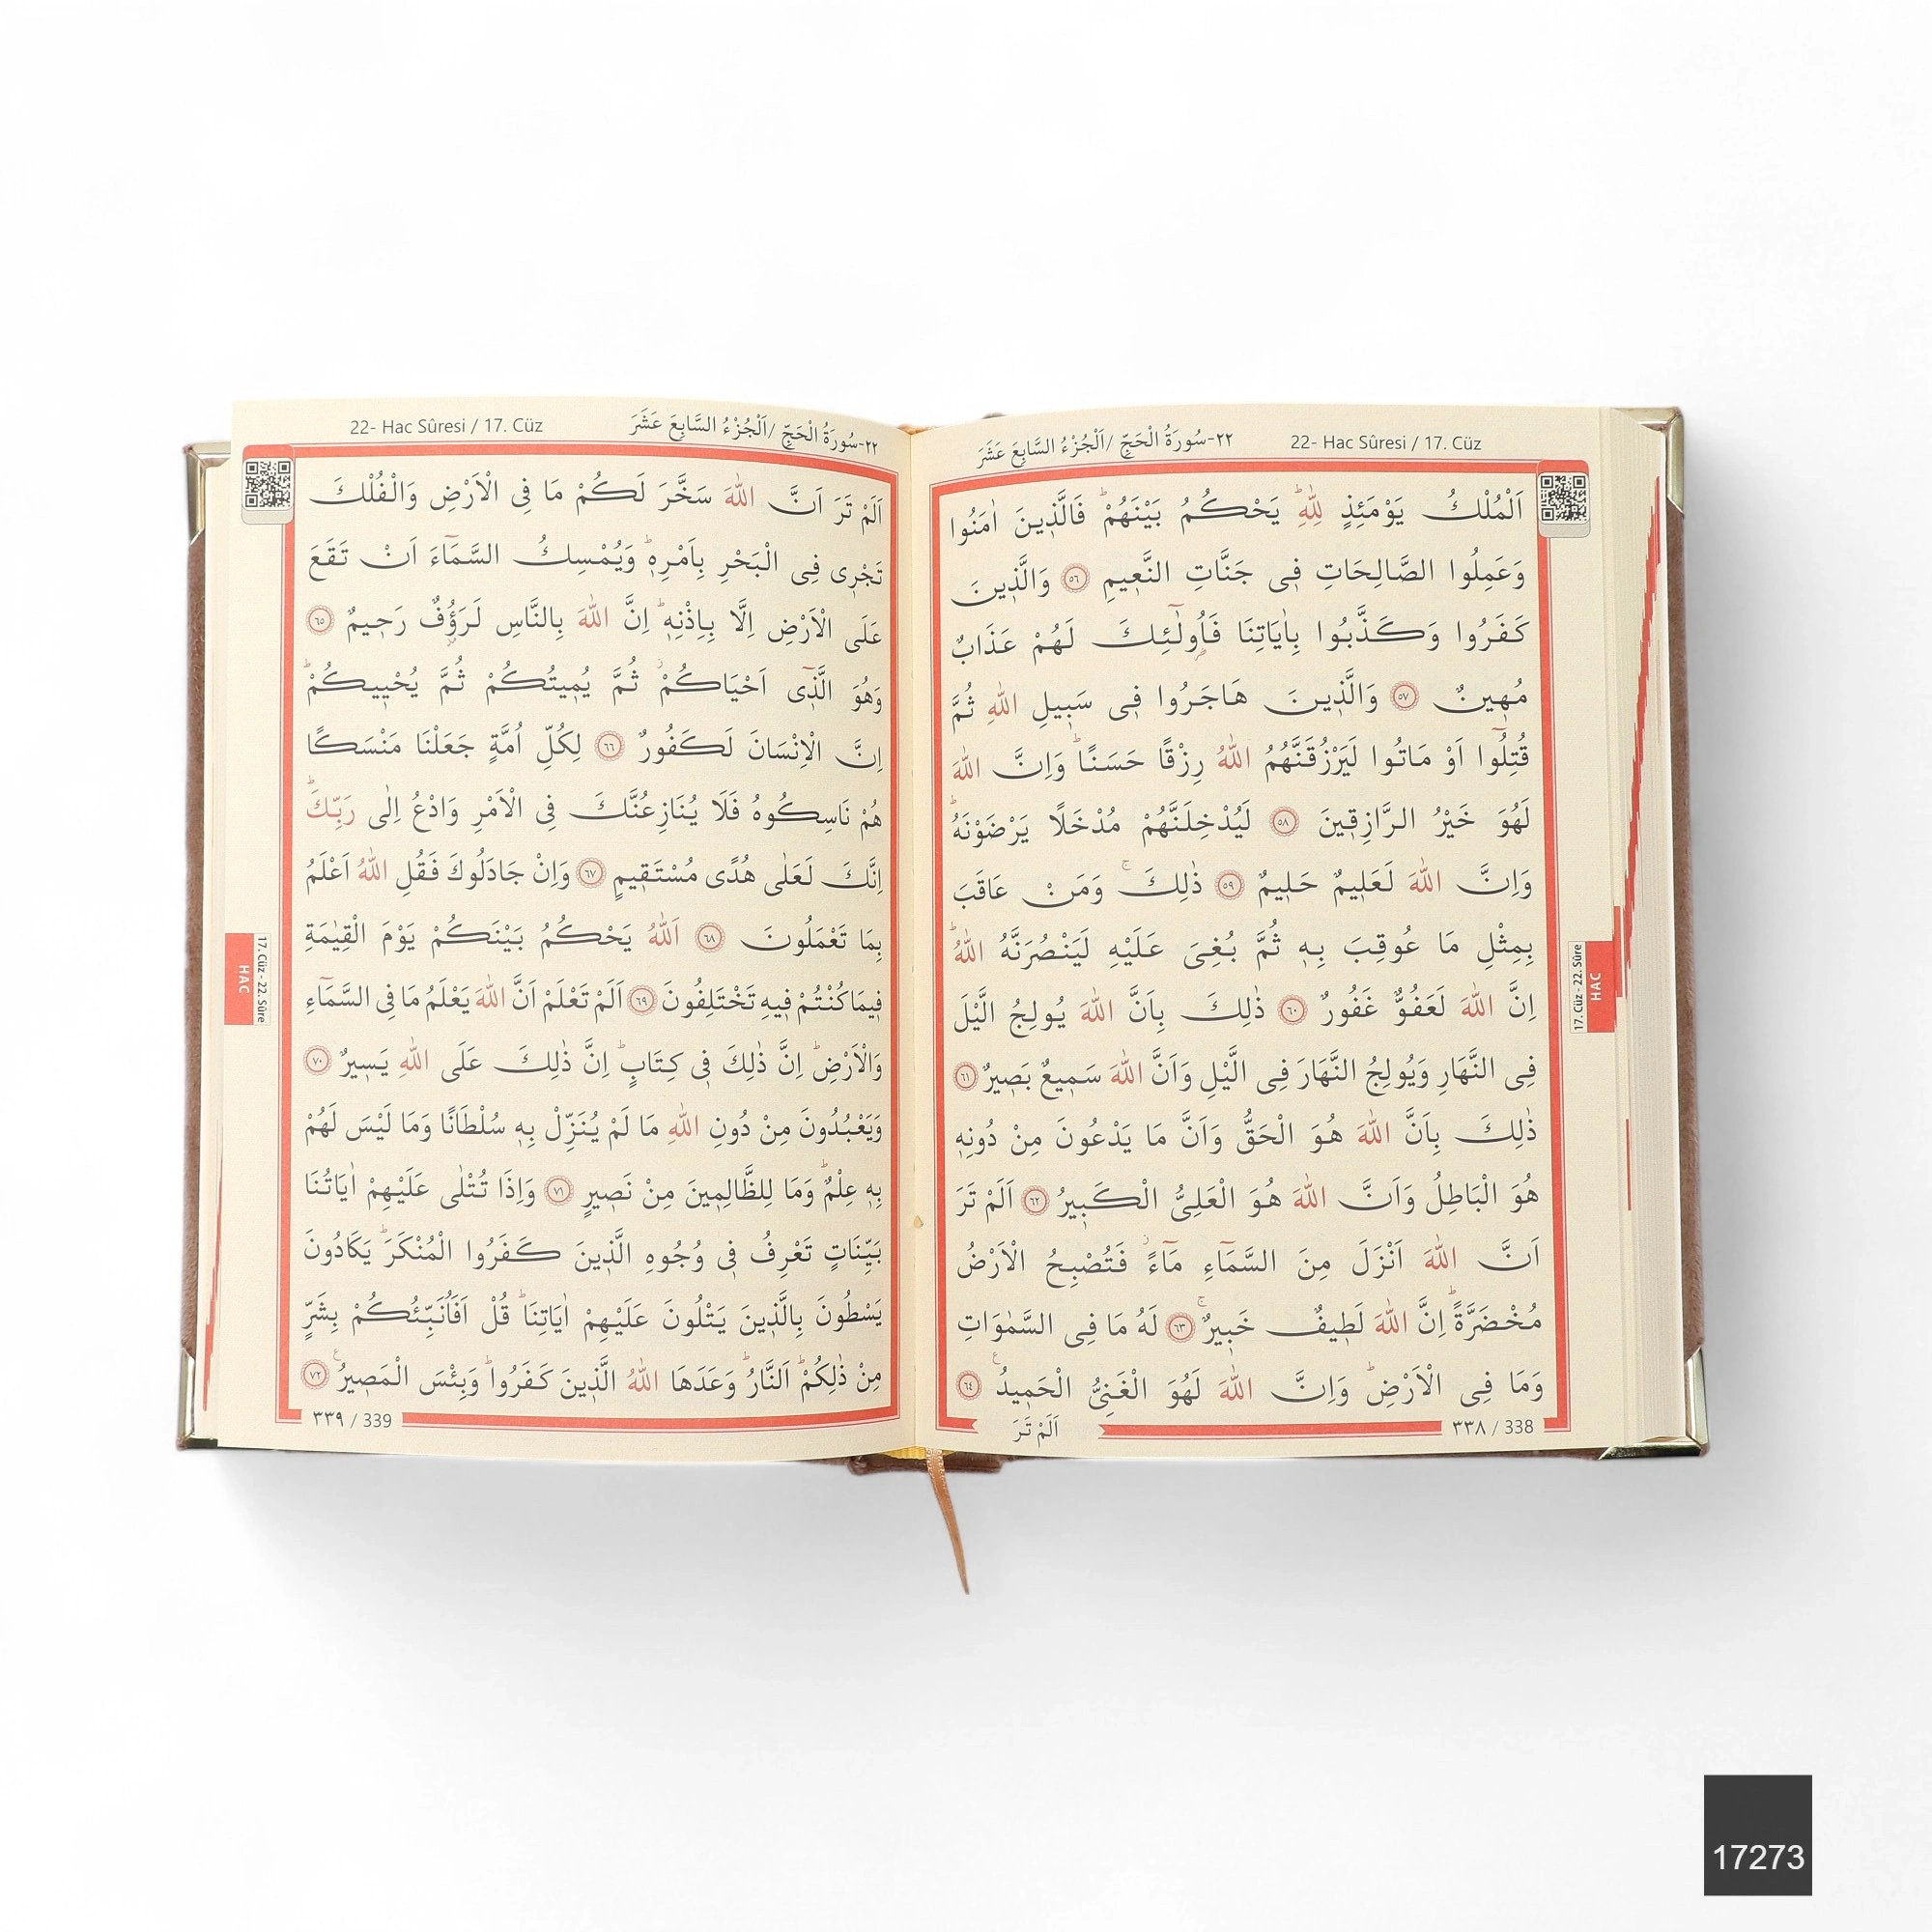 ٢٢-سُورَةُ الْحَجِّ /اَلْجُزْءُ السَّابِعَ عَشَرَ 22- Hac Sûresi / 17. Cüz
اَلْمُلْكُ يَوْمَئِذٍ لِلّٰهِۜ يَحْكُمُ بَيْنَهُمْۜ فَالَّذٖينَ اٰمَنُوا
وَعَمِلُوا الصَّالِحَاتِ فٖى جَنَّاتِ النَّعٖيمِ ٥٦ وَالَّذٖينَ
كَفَرُوا وَكَذَّبُوا بِاٰيَاتِنَا فَاُولٰٓئِكَ لَهُمْ عَذَابٌ
مُهٖينٌ ٥٧ وَالَّذٖينَ هَاجَرُوا فٖى سَبٖيلِ اللّٰهِ ثُمَّ
قُتِلُٓوا اَوْ مَاتُوا لَيَرْزُقَنَّهُمُ اللّٰهُ رِزْقًا حَسَنًاۜ وَاِنَّ اللّٰهَ
لَهُوَ خَيْرُ الرَّازِقٖينَ ٥٨ لَيُدْخِلَنَّهُمْ مُدْخَلًا يَرْضَوْنَهُۜ
وَاِنَّ اللّٰهَ لَعَلٖيمٌ حَلٖيمٌ ٥٩ ذٰلِكَۚ وَمَنْ عَاقَبَ
بِمِثْلِ مَا عُوقِبَ بِهٖ ثُمَّ بُغِىَ عَلَيْهِ لَيَنْصُرَنَّهُ اللّٰهُۜ
اِنَّ اللّٰهَ لَعَفُوٌّ غَفُورٌ ٦٠ ذٰلِكَ بِاَنَّ اللّٰهَ يُولِجُ الَّيْلَ
فِى النَّهَارِ وَيُولِجُ النَّهَارَ فِى الَّيْلِ وَاَنَّ اللّٰهَ سَمٖيعٌ بَصٖيرٌ ٦١
ذٰلِكَ بِاَنَّ اللّٰهَ هُوَ الْحَقُّ وَاَنَّ مَا يَدْعُونَ مِنْ دُونِهٖ
هُوَ الْبَاطِلُ وَاَنَّ اللّٰهَ هُوَ الْعَلِىُّ الْكَبٖيرُ ٦٢ اَلَمْ تَرَ
اَنَّ اللّٰهَ اَنْزَلَ مِنَ السَّمَٓاءِ مَٓاءًؗ فَتُصْبِحُ الْاَرْضُ
مُخْضَرَّةًۜ اِنَّ اللّٰهَ لَطٖيفٌ خَبٖيرٌۚ ٦٣ لَهُ مَا فِى السَّمٰوَاتِ
وَمَا فِى الْاَرْضِۜ وَاِنَّ اللّٰهَ لَهُوَ الْغَنِىُّ الْحَمٖيدُ ٦٤
٣٣٨ / 338
اَلَمْ تَرَ
17. Cüz - 22. Sûre
HAC
٢٢-سُورَةُ الْحَجِّ /اَلْجُزْءُ السَّابِعَ عَشَرَ 22- Hac Sûresi / 17. Cüz
اَلَمْ تَرَ اَنَّ اللّٰهَ سَخَّرَ لَكُمْ مَا فِى الْاَرْضِ وَالْفُلْكَ
تَجْرٖى فِى الْبَحْرِ بِاَمْرِهٖۜ وَيُمْسِكُ السَّمَٓاءَ اَنْ تَقَعَ
عَلَى الْاَرْضِ اِلَّا بِاِذْنِهٖۜ اِنَّ اللّٰهَ بِالنَّاسِ لَرَؤُفٌ رَحٖيمٌ ٦٥
وَهُوَ الَّذٖٓى اَحْيَاكُمْؗ ثُمَّ يُمٖيتُكُمْ ثُمَّ يُحْيٖيكُمْۜ
اِنَّ الْاِنْسَانَ لَكَفُورٌ ٦٦ لِكُلِّ اُمَّةٍ جَعَلْنَا مَنْسَكًا
هُمْ نَاسِكُوهُ فَلَا يُنَازِعُنَّكَ فِى الْاَمْرِ وَادْعُ اِلٰى رَبِّكَۜ
اِنَّكَ لَعَلٰى هُدًى مُسْتَقٖيمٍ ٦٧ وَاِنْ جَادَلُوكَ فَقُلِ اللّٰهُ اَعْلَمُ
بِمَا تَعْمَلُونَ ٦٨ اَللّٰهُ يَحْكُمُ بَيْنَكُمْ يَوْمَ الْقِيٰمَةِ
فٖيمَا كُنْتُمْ فٖيهِ تَخْتَلِفُونَ ٦٩ اَلَمْ تَعْلَمْ اَنَّ اللّٰهَ يَعْلَمُ مَا فِى السَّمَٓاءِ
وَالْاَرْضِۜ اِنَّ ذٰلِكَ فٖى كِتَابٍۜ اِنَّ ذٰلِكَ عَلَى اللّٰهِ يَسٖيرٌ ٧٠
وَيَعْبُدُونَ مِنْ دُونِ اللّٰهِ مَا لَمْ يُنَزِّلْ بِهٖ سُلْطَانًا وَمَا لَيْسَ لَهُمْ
بِهٖ عِلْمٌۜ وَمَا لِلظَّالِمٖينَ مِنْ نَصٖيرٍ ٧١ وَاِذَا تُتْلٰى عَلَيْهِمْ اٰيَاتُنَا
بَيِّنَاتٍ تَعْرِفُ فٖى وُجُوهِ الَّذٖينَ كَفَرُوا الْمُنْكَرَۜ يَكَادُونَ
يَسْطُونَ بِالَّذٖينَ يَتْلُونَ عَلَيْهِمْ اٰيَاتِنَاۜ قُلْ اَفَاُنَبِّئُكُمْ بِشَرٍّ
مِنْ ذٰلِكُمْۜ اَلنَّارُۜ وَعَدَهَا اللّٰهُ الَّذٖينَ كَفَرُواۜ وَبِئْسَ الْمَصٖيرُ ٧٢
٣٣٩ / 339
17. Cüz - 22. Sûre
HAC
17273